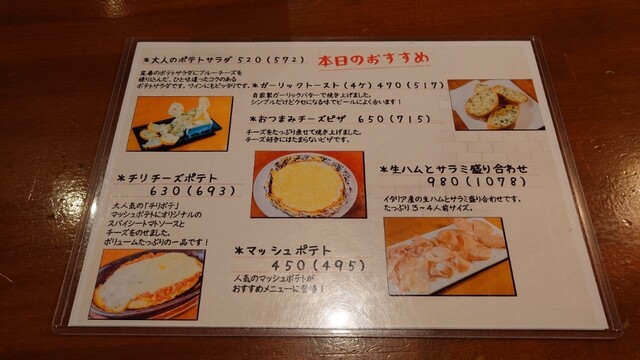 本日のおすすめ
*大人のポテトサラダ 520(572)
定番のポテトサラダにブルーチーズを
練り込んだ、ひと味違ったコクのある
ポテトサラダです。ワインにもピッタリです。
*ガーリックトースト(4ケ)470(517)
自家製ガーリックバターで焼き上げました。
シンプルだけどクセになる味でビールによく合います!
*おつまみチーズピザ 650(715)
チーズをたっぷり乗せて焼き上げました。
チーズ好きにはたまらないピザです。
*チリチーズポテト
630(693)
大人気の「チリポテ」
マッシュポテトにオリジナルの
スパイシートマトソースと
チーズをのせました。
ボリュームたっぷりの一品です!
*生ハムとサラミ盛り合わせ
980(1078)
イタリア産の生ハムとサラミ盛り合わせです。
たっぷり3~4人前サイズ。
*マッシュポテト
450(495)
人気のマッシュポテトが
おすすめメニューに登場!